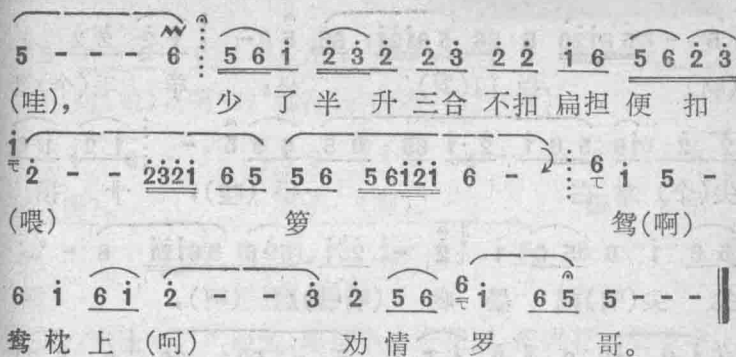 5 - - - 6 5 6 i 2̇ 3̇ 2̇ 2̇ 3̇ 2̇ 2̇ i 6 5 6 2̇ 3̇
(哇), 少 了 半 升 三合 不扣 扁担 便 扣
i 2̇ - - 2̇3̇2̇i 6 5 5 6 5 6i2̇i 6 - 6 i 5 -
(喂) 箩 鸳(啊)
6 i 6 i 2̇ - - 3̇ 2̇ 5 6 6 i 6 5 5 - - -
鸯 枕 上 (呵) 劝 情 罗 哥。